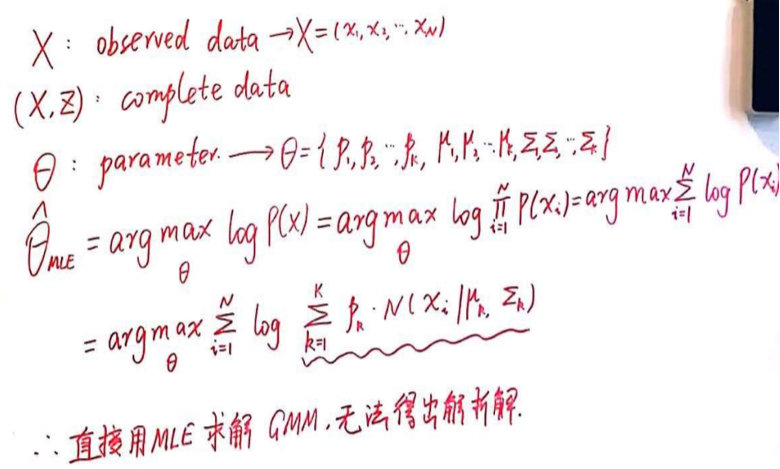 X : observed data → X = (x₁, x₂, ⋯, x_N)
(X, Z) : complete data
θ : parameter. → θ = { p₁, p₂, ⋯, p_K, μ₁, μ₂, ⋯ μ_K, Σ₁, Σ₂, ⋯, Σ_K }
θ̂_MLE = arg max_θ log P(X) = arg max_θ log ∏_{i=1}^{N} P(x_i) = arg max Σ_{i=1}^{N} log P(x_i)
= arg max_θ Σ_{i=1}^{N} log Σ_{k=1}^{K} p_k · N(x_i | μ_k, Σ_k)
∴ 直接用MLE求解 GMM, 无法得出解析解.